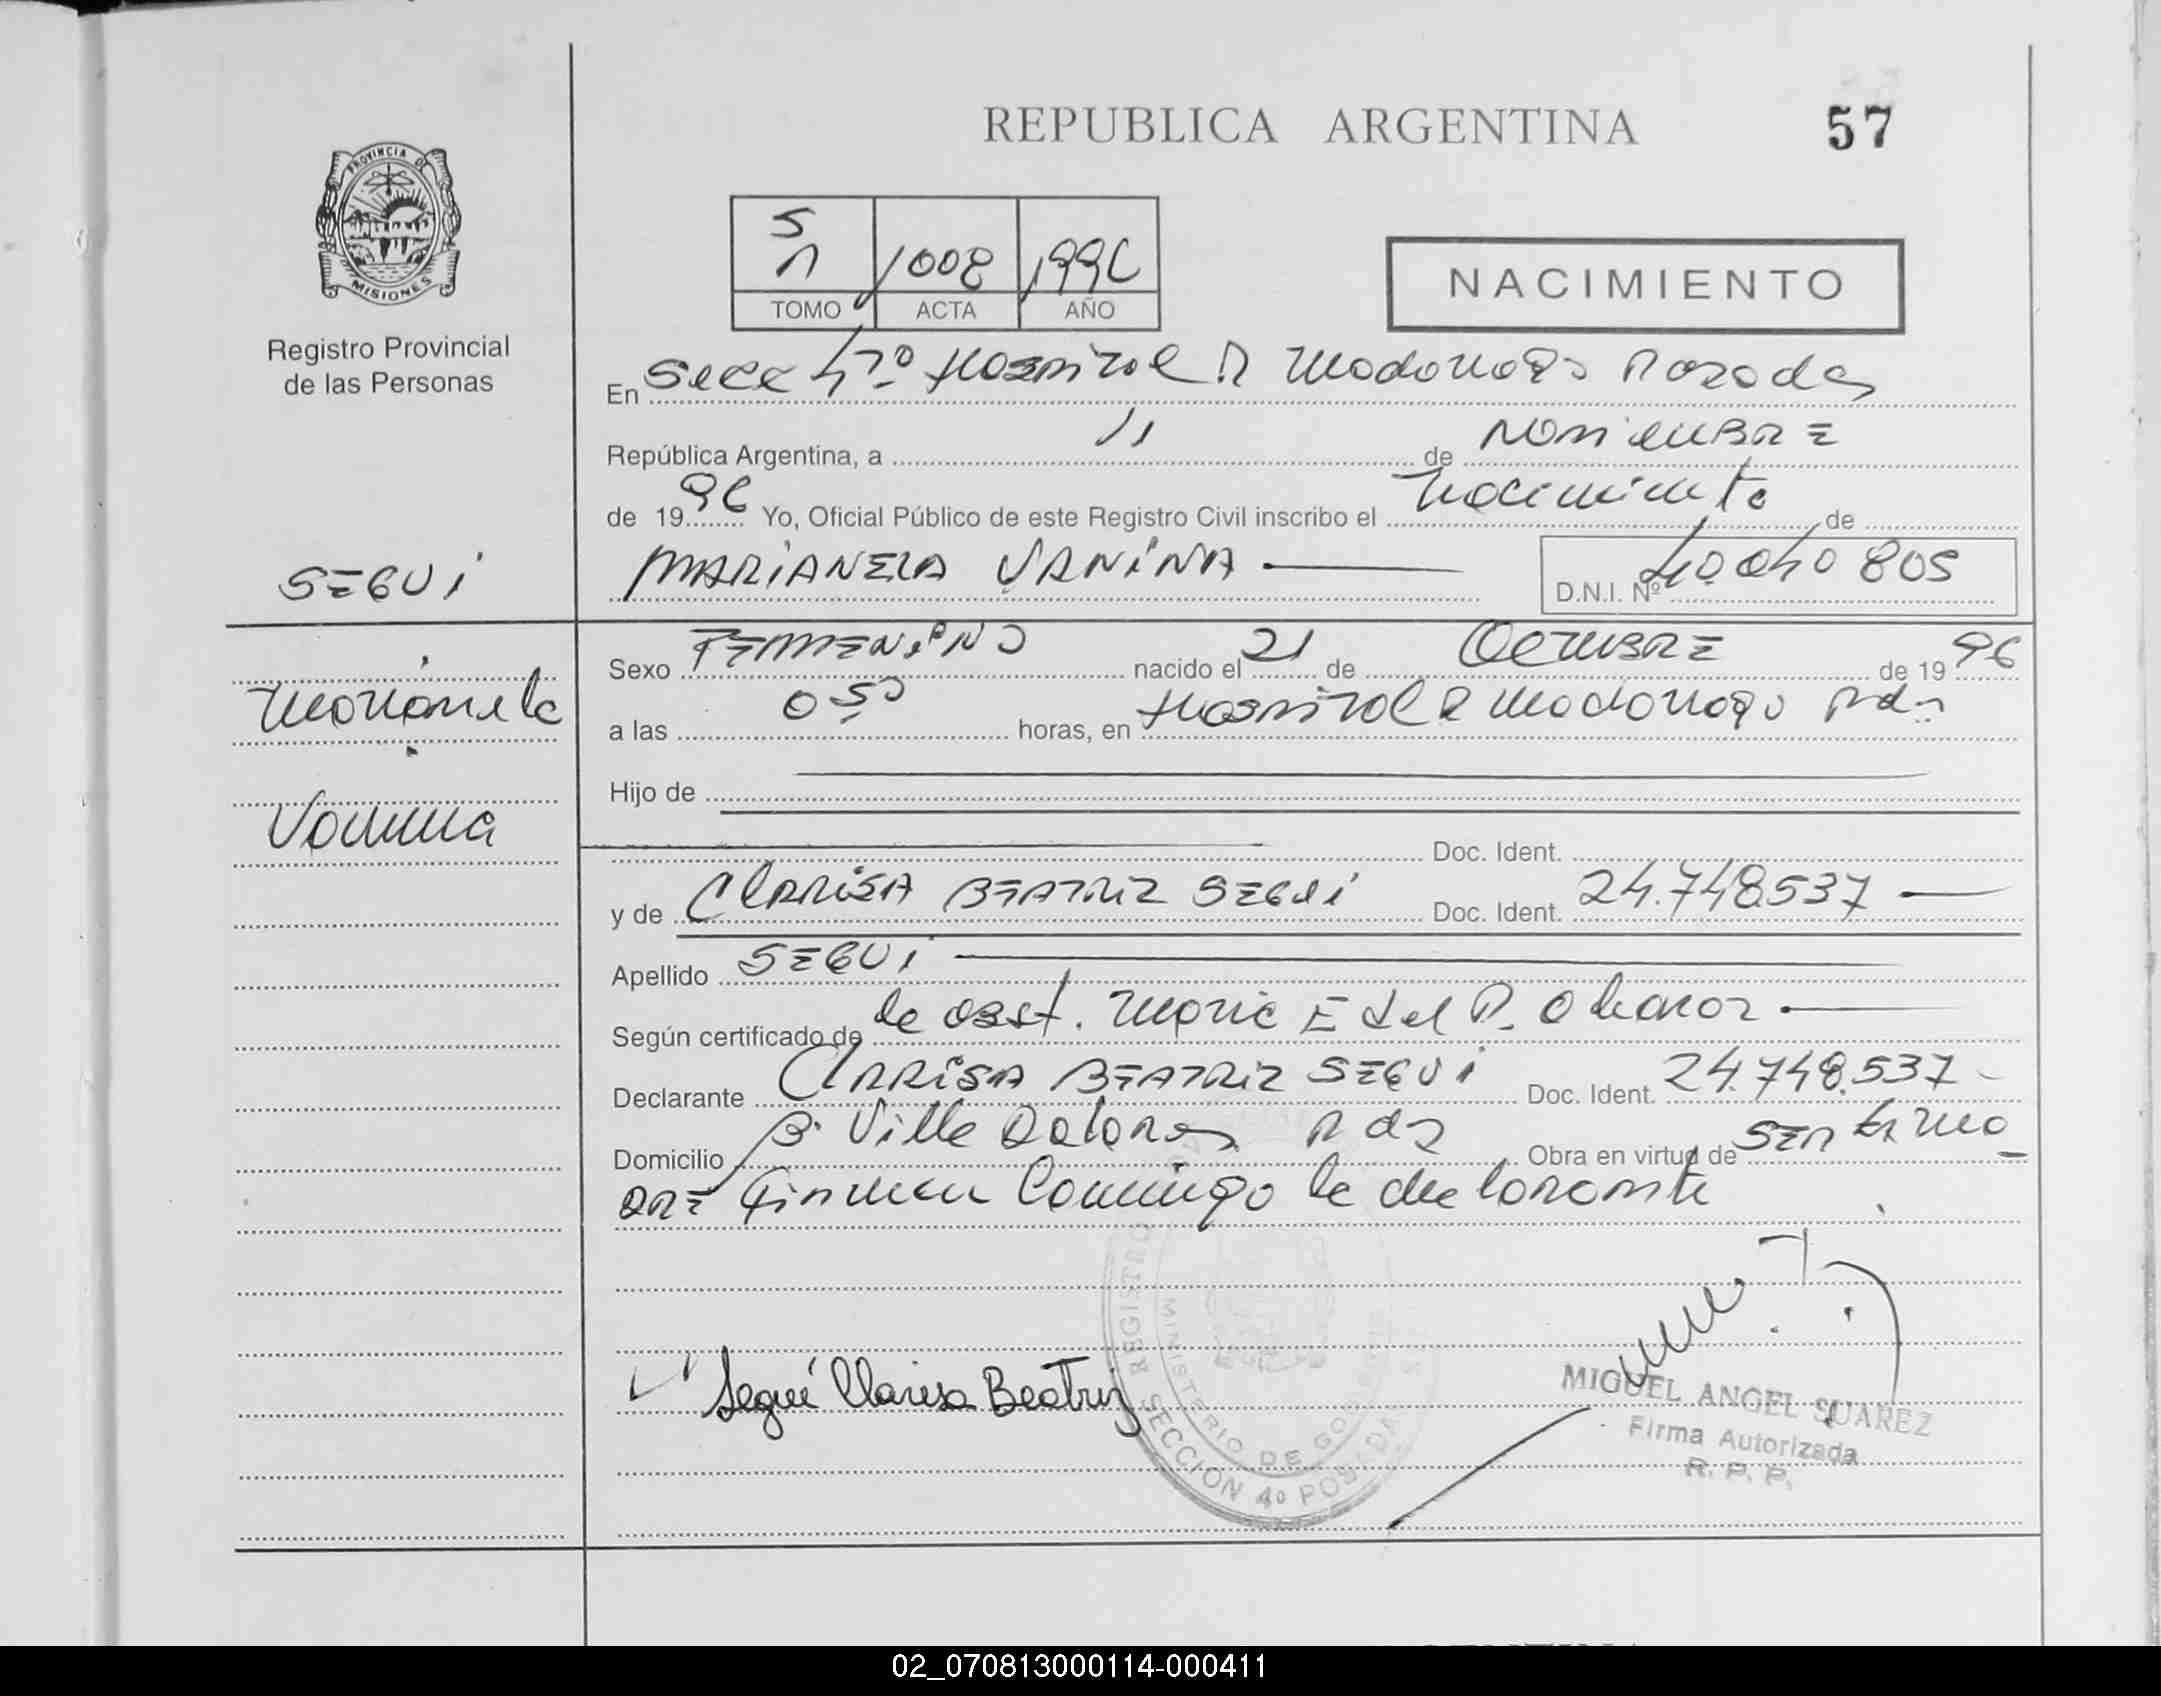 REPUBLICA ARGENTINA 57
PROVINCIA DE
MISIONES
Registro Provincial
de las Personas
5
1 1008 1996
TOMO ACTA AÑO
NACIMIENTO
En Secc 4ta Hospital R Madariaga Posadas
República Argentina, a 11 de NOVIEMBRE
de 1996 Yo, Oficial Público de este Registro Civil inscribo el Nacimiento de
SEGUI
MARIANELA VANINA D.N.I. Nº 40.040 805
Marianela
Vanina
Sexo FEMENINO nacido el 21 de OCTUBRE de 1996
a las 0 50 horas, en Hospital R Madariaga Pdas
Hijo de
Doc. Ident.
y de CLARISA BEATRIZ SEGUI Doc. Ident. 24.748.537
Apellido SEGUI
Según certificado de la obst. Maria E del P.
Declarante CLARISA BEATRIZ SEGUI Doc. Ident. 24.748.537
Domicilio B. Villa Dolores Pdas Obra en virtud de
Conmigo la declarante
Segui Clarisa Beatriz
REGISTRO
MINISTERIO DE GOBIERNO
SECCION 4º POSADAS
MIGUEL ANGEL SUAREZ
Firma Autorizada
R. P. P.
02_070813000114-000411